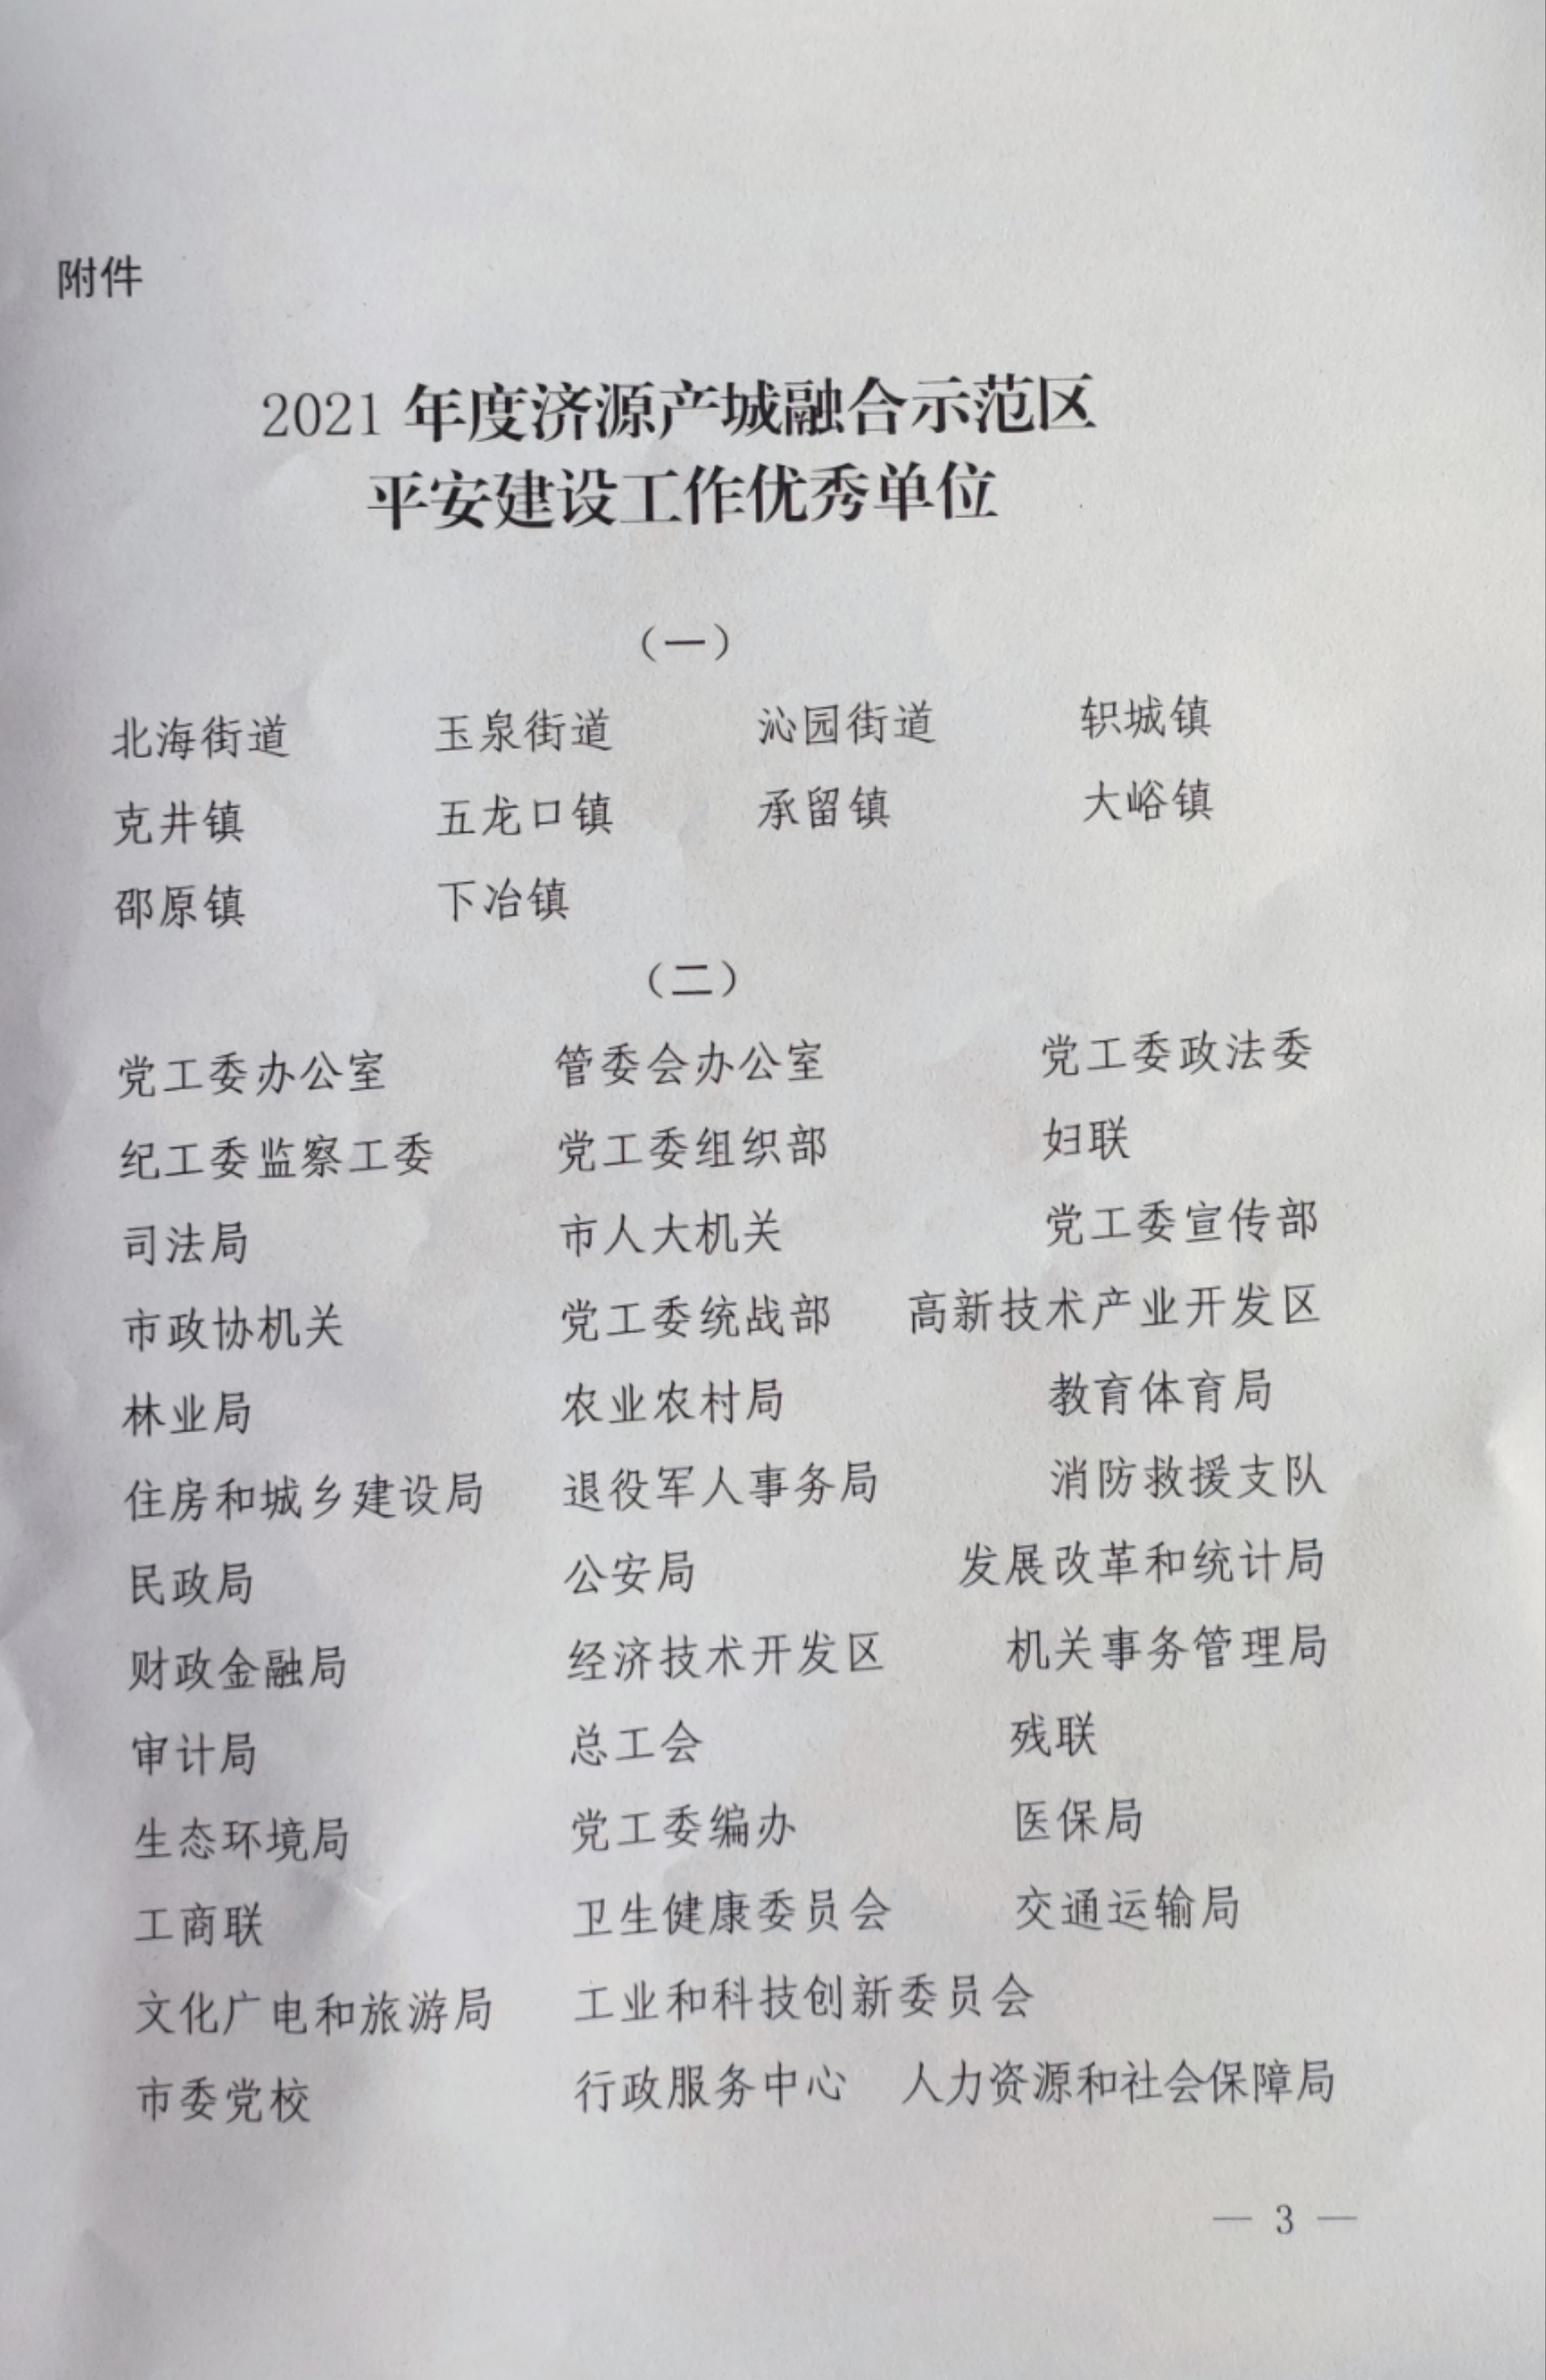 附件
2021 年度济源产城融合示范区
平安建设工作优秀单位
（一）
北海街道 玉泉街道 沁园街道 轵城镇
克井镇 五龙口镇 承留镇 大峪镇
邵原镇 下冶镇
（二）
党工委办公室 管委会办公室 党工委政法委
纪工委监察工委 党工委组织部 妇联
司法局 市人大机关 党工委宣传部
市政协机关 党工委统战部 高新技术产业开发区
林业局 农业农村局 教育体育局
住房和城乡建设局 退役军人事务局 消防救援支队
民政局 公安局 发展改革和统计局
财政金融局 经济技术开发区 机关事务管理局
审计局 总工会 残联
生态环境局 党工委编办 医保局
工商联 卫生健康委员会 交通运输局
文化广电和旅游局 工业和科技创新委员会
市委党校 行政服务中心 人力资源和社会保障局
— 3 —